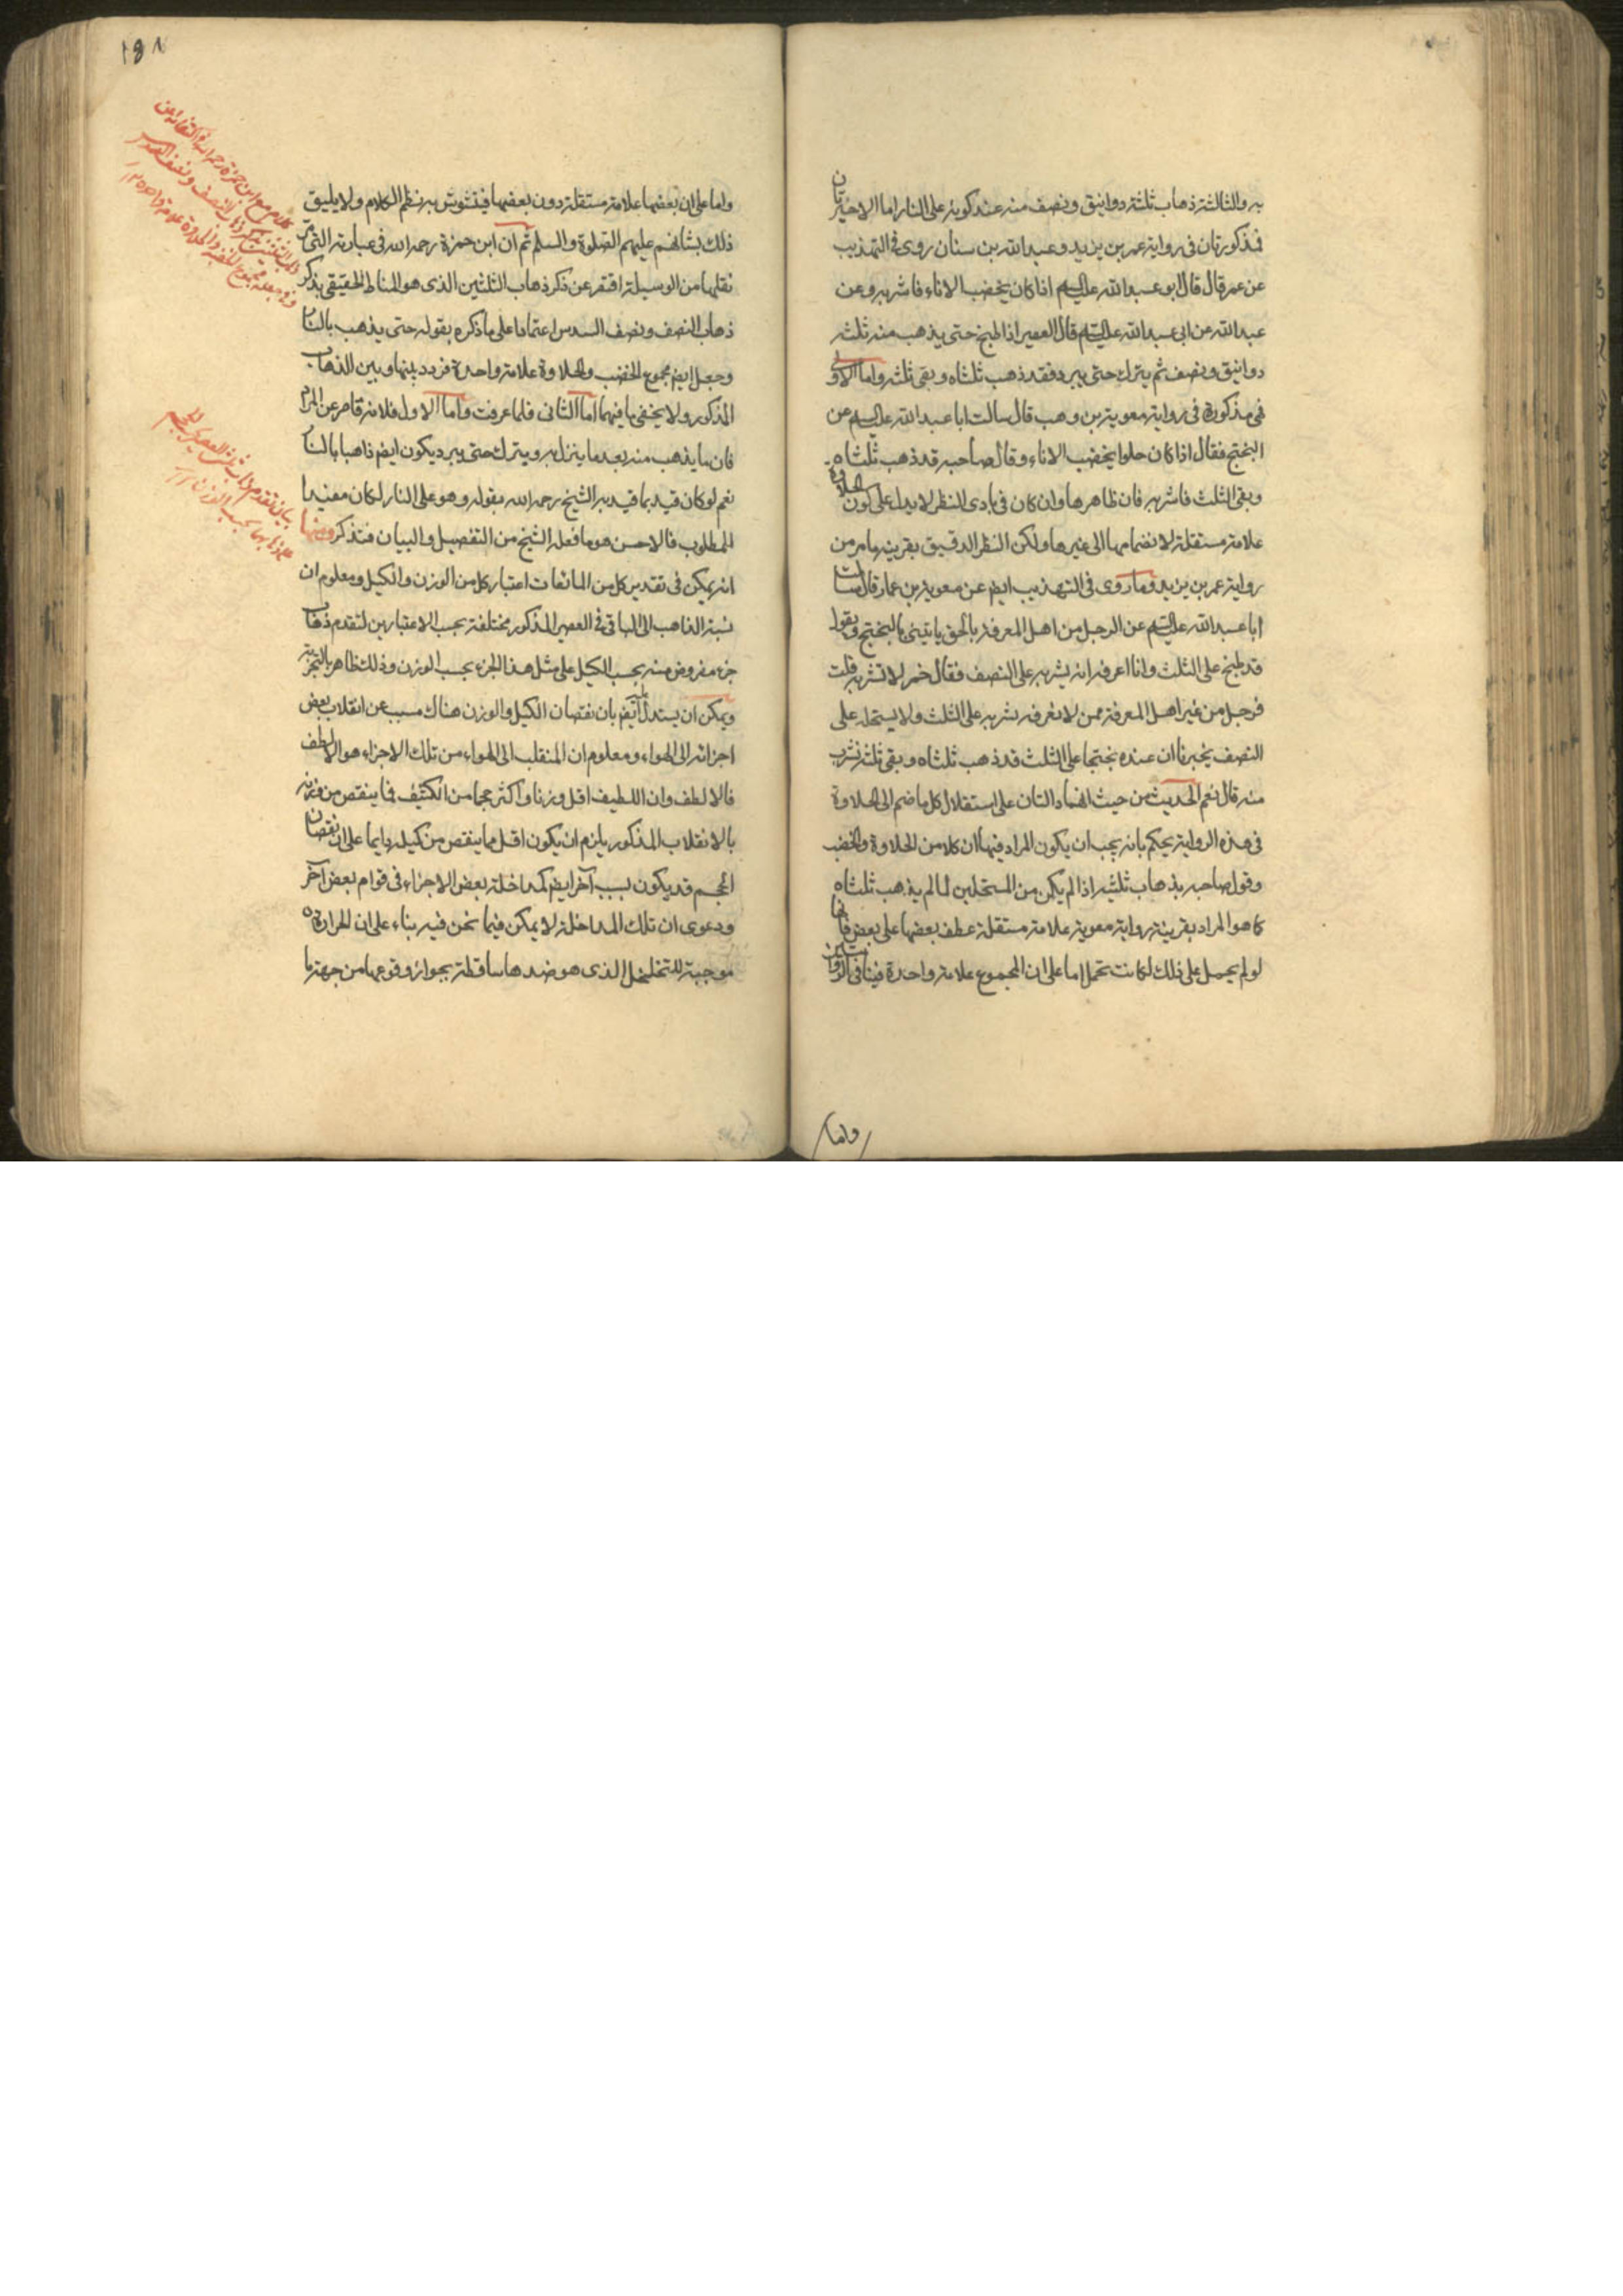 به والثالثة ذهاب ثلثة دوانيق ونصف منه عند كونه على النار اما الاخيرتان
فمذكورتان فى رواية عمر بن يزيد وعبد الله بن سنان روى فى التهذيب
عن عمر قال قال ابو عبد الله عليه السلام اذا كان يخضب الاناء فاشربه وعن
عبد الله عن ابى عبد الله عليه السلام قال العصير اذا طبخ حتى يذهب منه ثلثة
دوانيق ونصف ثم يترك حتى يبرد فقد ذهب ثلثاه وبقى ثلثه واما الاولى
فمذكورة فى رواية معوية بن وهب قال سالت ابا عبد الله عليه السلام عن
البختج فقال اذا كان حلوا يخضب الاناء وقال صاحبه قد ذهب ثلثاه
وبقى الثلث فاشربه فان ظاهرها وان كان فى بادى النظر لا يدل على كون الحلاوة
علامة مستقلة لانضمامها الى غيرها ولكن النظر الدقيق بقرينة ما مر من
رواية عمر بن يزيد وما روى فى التهذيب ايضا عن معوية بن عمار قال سالت
ابا عبد الله عليه السلام عن الرجل من اهل المعرفة بالحق ياتينى بالبختج ويقول
قد طبخ على الثلث وانا اعرفه انه يشربه على النصف فقال خمر لا تشربه قلت
فرجل من غير اهل المعرفة ممن لا نعرفه يشربه على الثلث ولا يستحله على
النصف يخبرنا ان عنده بختجا على الثلث قد ذهب ثلثاه وبقى ثلثه نشرب
منه قال نعم الحديث من حيث انهما دالتان على استقلال كل ما ضم الى الحلاوة
فى هذه الرواية يحكم بانه يجب ان يكون المراد فيها ان كلا من الحلاوة والخضب
وقول صاحبه بذهاب ثلثيه اذا لم يكن من المستحلين لما لم يذهب ثلثاه
كما هو المراد بقرينة رواية معوية علامة مستقلة عطف بعضها على بعض فانها
لو لم يحمل على ذلك لكانت تحمل اما على ان المجموع علامة واحدة فينافى الروايتين
واما
١٥١
واما على ان بعضها علامة مستقلة دون بعضها فيتشوش به نظم الكلام ولا يليق
ذلك بشانهم عليهم الصلوة والسلم ثم ان ابن حمزة رحمه الله فى عبارته التى مر
نقلها من الوسيلة اقتصر عن ذكر ذهاب الثلثين الذى هو المناط الحقيقى بذكر
ذهاب النصف ونصف السدس اعتمادا على ما ذكره بقوله حتى يذهب بالنار
وجعل ايضا مجموع الخضب والحلاوة علامة واحدة فردد بينها وبين الذهاب
المذكور ولا يخفى ما فيهما اما الثانى فلما عرفت واما الاول فلانه قاصر عن المرام
فان ما يذهب منه بعد ما ينزل به ويترك حتى يبرد يكون ايضا ذاهبا بالنار
نعم لو كان قيد بما قيد به الشيخ رحمه الله بقوله وهو على النار لكان مفيدا
للمطلوب فالاحسن هو ما فعله الشيخ من التفصيل والبيان فتذكر ومنها
انه يمكن فى تقدير كل من المائعات اعتبار كل من الوزن والكيل ومعلوم ان
نسبة الذاهب الى الباقى فى العصير المذكور مختلفة بحسب الاعتبارين لتقدم ذهاب
جزء مفروض منه بحسب الكيل على مثل هذا الجزء بحسب الوزن وذلك ظاهر بالتجربة
ويمكن ان يستدل ايضا بان نقصان الكيل والوزن هناك مسبب عن انقلاب بعض
اجزائه الى الهواء ومعلوم ان المنقلب الى الهواء من تلك الاجزاء هو الالطف
فالالطف وان اللطيف اقل وزنا واكثر حجما من الكثيف فما ينقص من وزنه
بالانقلاب المذكور يلزم ان يكون اقل مما ينقص من كيله بايما على ان نقصان
الحجم قد يكون بسبب آخر ايضا كمداخلة بعض الاجزاء فى قوام بعض آخر
ودعوى ان تلك المداخلة لا يمكن فيما نحن فيه بناء على ان الحرارة
موجبة للتخلخل الذى هو ضدها ساقطة بجواز وقوعها من جهة ما